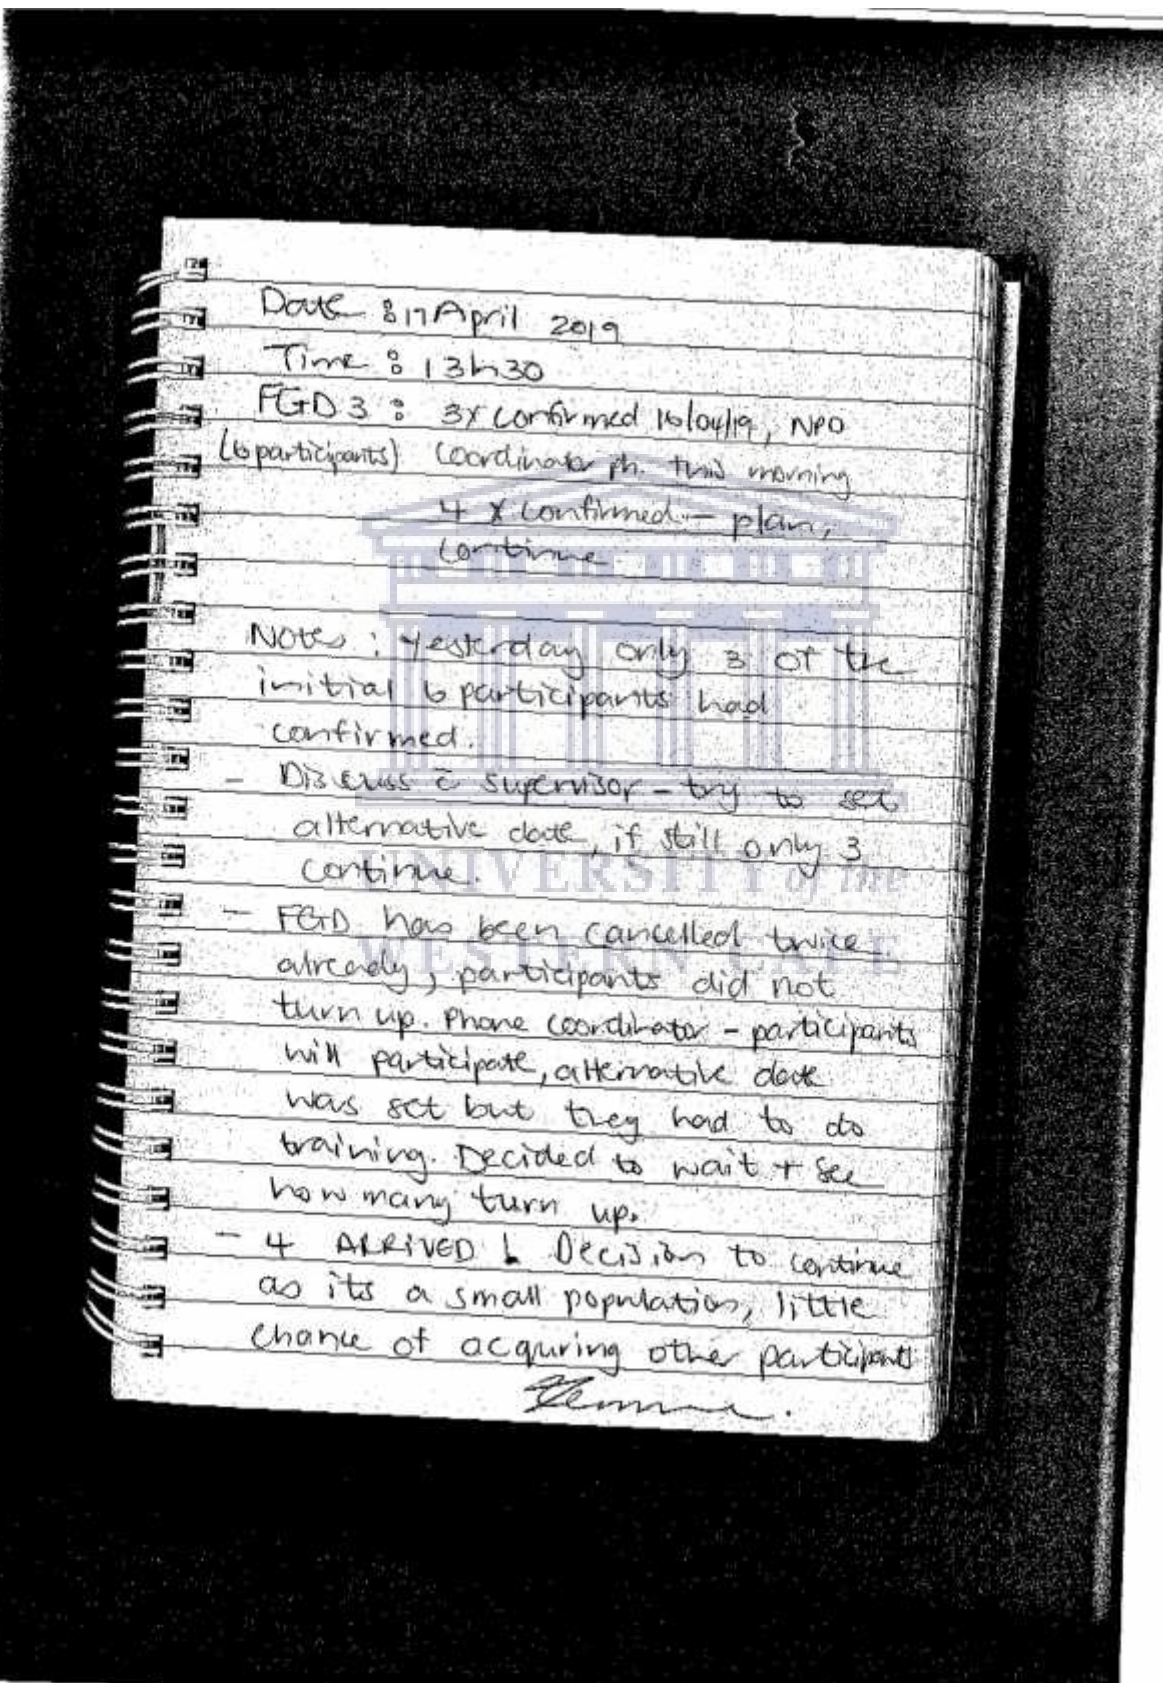 Date : 17 April 2019
Time : 13h30
FGD 3 : 3x confirmed 16/04/19, NPO
(6 participants) Coordinator ph. this morning
4 x confirmed - plan,
continue.
Notes : Yesterday only 3 of the
initial 6 participants had
confirmed.
- Discuss c̄ supervisor - try to set
alternative date, if still only 3
continue.
UNIVERSITY of the
- FGD has been cancelled twice
WESTERN CAPE
already, participants did not
turn up. Phone coordinator - participants
will participate, alternative date
was set but they had to do
training. Decided to wait + see
how many turn up.
- 4 ARRIVED ! Decision to continue
as its a small population, little
chance of acquring other participants